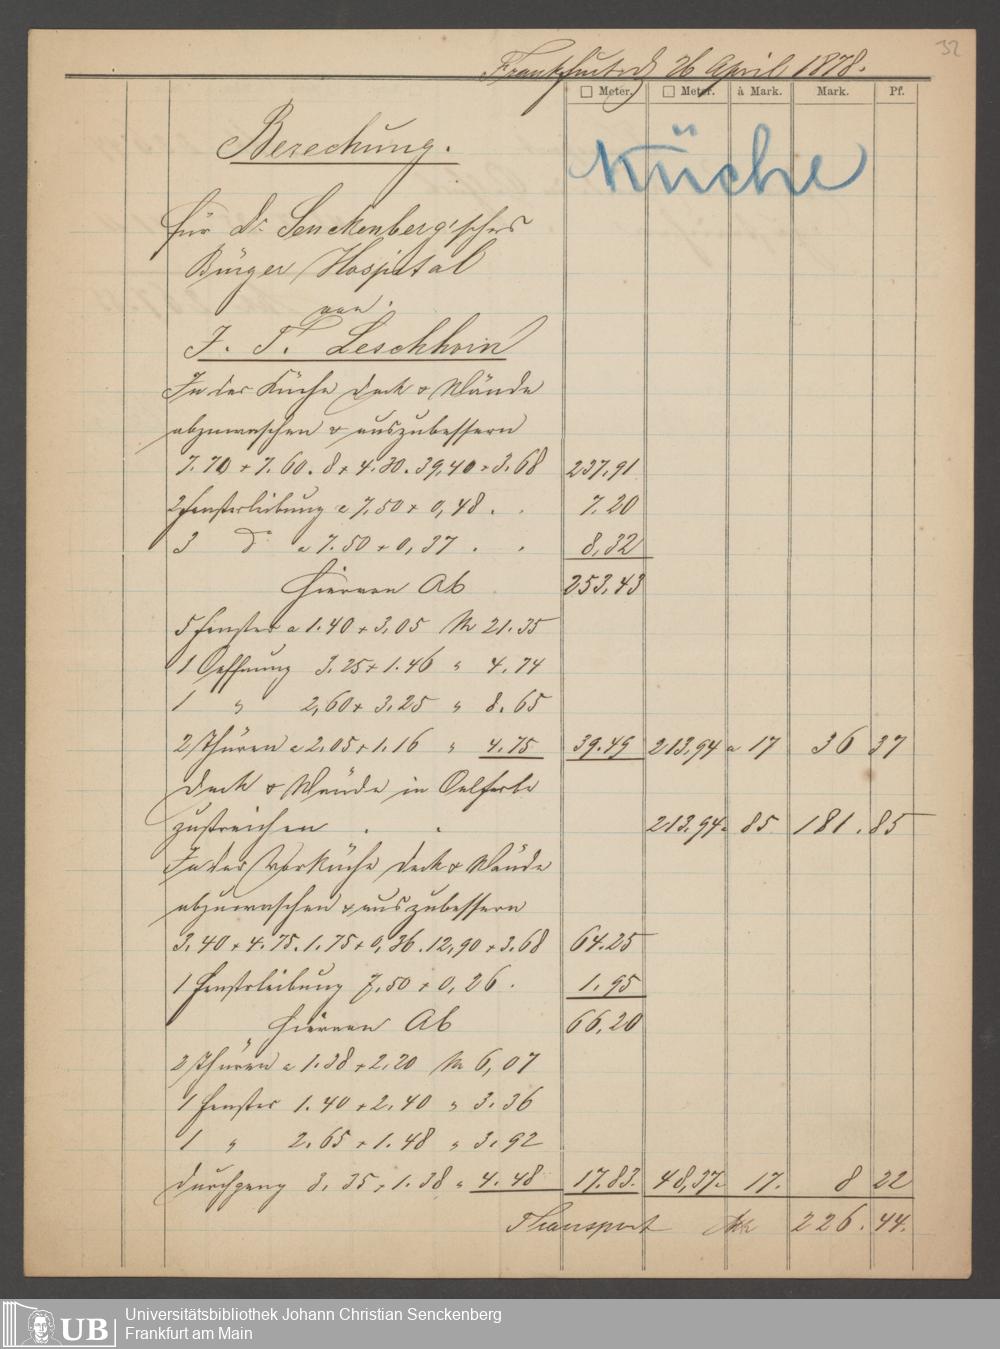 32
Frankfurt d 26 April 1878.
□ Meter. □ Meter. à Mark. Mark. Pf.
Berechung.
Küche
für Dr. Senckenberg'sches
Bürger Hospital
von
J. T. Leschhorn
In der Küche Deck & Wände
abzuwaschen & auszubessern
7.70 + 7.60. 8 + 4.30. 39,40 + 3.68 237,91
2 Fensterleibung a 7,50 + 0,48 . . 7.20
3 do a 7.50 + 0,37 . . 8,32
Hiervon Ab 253,43
5 Fenster a 1.40 + 3,05 M 21.35
1 Oeffnung 3.25 + 1.46 " 4.74
1 " 2,60 + 3.25 " 8.65
2 Thüren a 2.05 + 1.16 " 4.75 39.49 213,94 a 17 36 37
Deck & Wände in Oelfarbe
zustreichen . . 213.94 . 85 181 . 85
In der Vorküche Deck & Wände
abzuwaschen & auszubessern
3.40 + 4.75. 1.75 + 0,36. 12,90 + 3.68 64.25
1 Fensterleibung 7,50 + 0,26 . 1.95
Hiervon Ab 66,20
2 Thüren a 1.38 + 2.20 M 6,07
1 Fenster 1.40 + 2,40 " 3.36
1 " 2.65 + 1.48 " 3,92
Durchgang 3,35 + 1.38 " 4.48 17.83. 48,37. 17. 8 22
Transport Mk 226.44.
UB Universitätsbibliothek Johann Christian Senckenberg
Frankfurt am Main